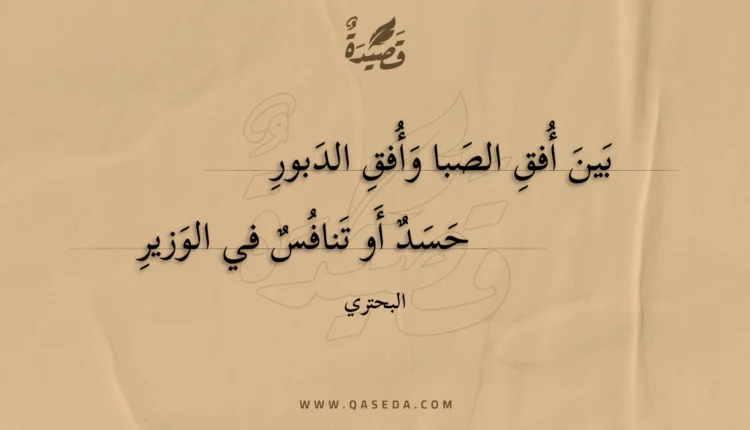 قَصِيدَةٌ
بَينَ أُفقِ الصَبا وَأُفقِ الدَبورِ
حَسَدٌ أَو تَنافُسٌ في الوَزيرِ
البحتري
WWW.QASEDA.COM